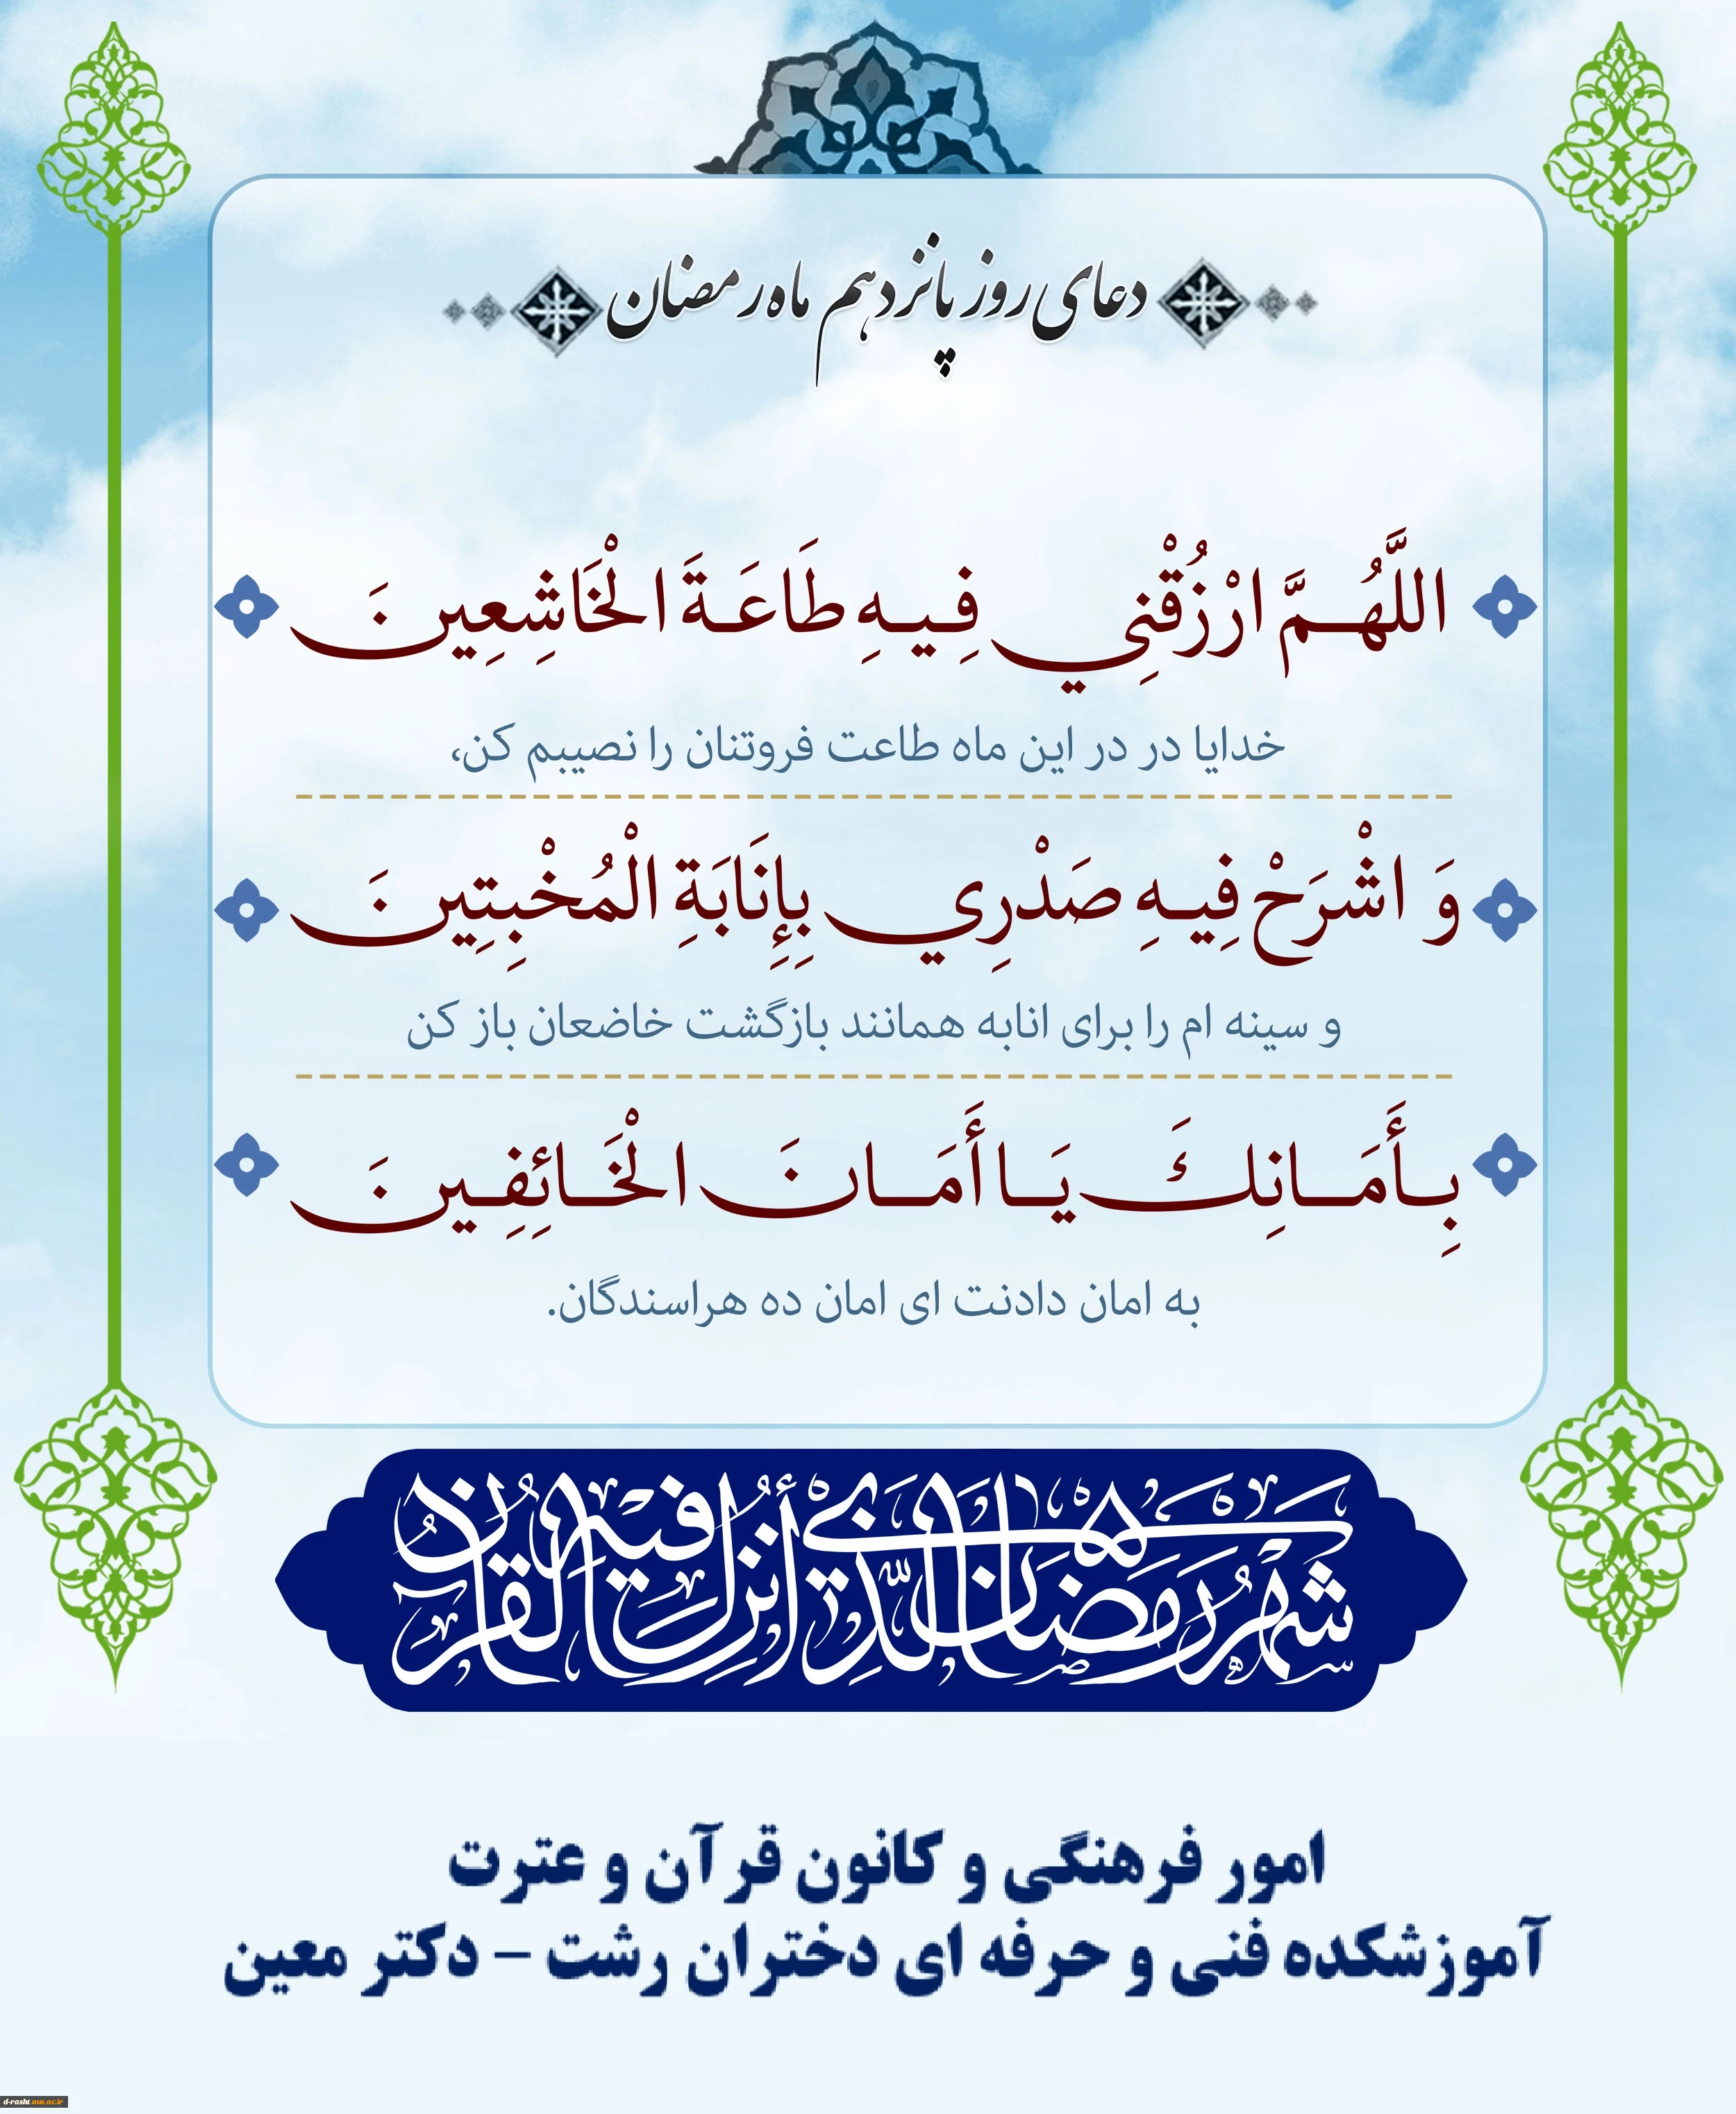 دعای روز پانزدهم ماه رمضان
اللَّهُمَّ ارْزُقْنِي فِيهِ طَاعَةَ الْخَاشِعِينَ
خدایا در در این ماه طاعت فروتنان را نصیبم کن،
وَ اشْرَحْ فِيهِ صَدْرِي بِإِنَابَةِ الْمُخْبِتِينَ
و سینه ام را برای انابه همانند بازگشت خاضعان باز کن
بِأَمَانِكَ يَا أَمَانَ الْخَائِفِينَ
به امان دادنت ای امان ده هراسندگان.
شهر رمضان الذي أنزل فيه القرآن
امور فرهنگی و کانون قرآن و عترت
آموزشکده فنی و حرفه ای دختران رشت – دکتر معین
d-rasht.nus.ac.ir